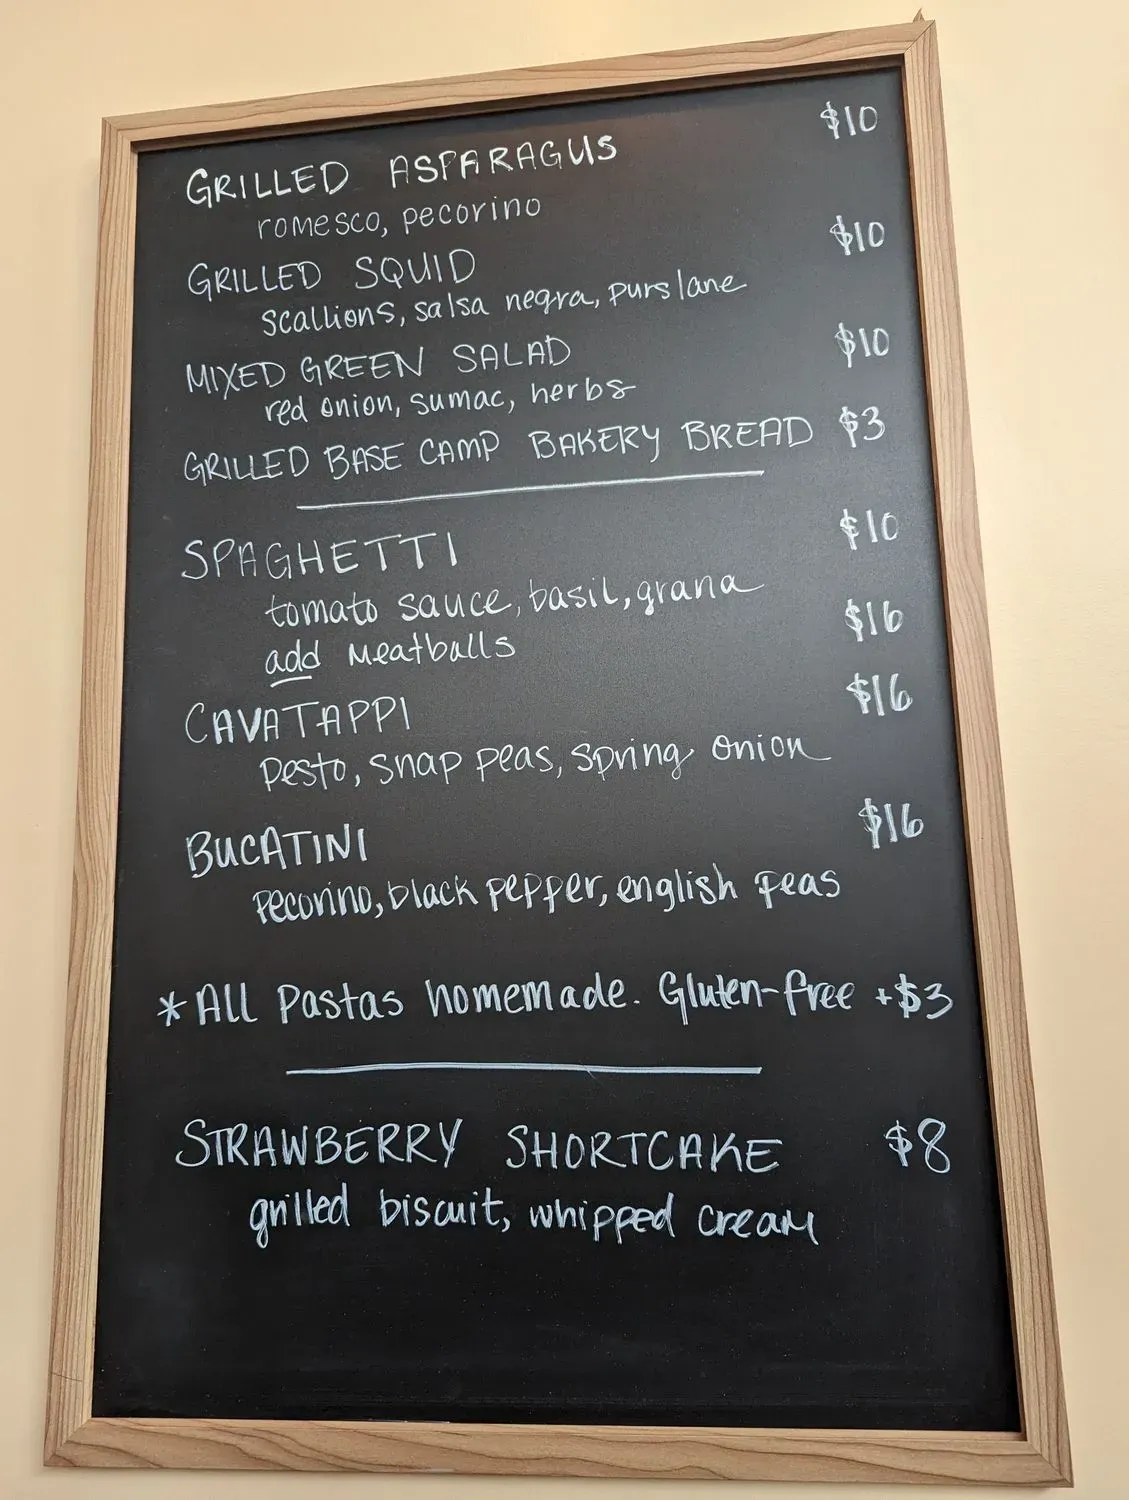 GRILLED ASPARAGUS $10
romesco, pecorino
GRILLED SQUID $10
scallions, salsa negra, purslane
MIXED GREEN SALAD $10
red onion, sumac, herbs
GRILLED BASE CAMP BAKERY BREAD $3
SPAGHETTI $10
tomato sauce, basil, grana
add Meatballs $16
CAVATAPPI $16
pesto, snap peas, spring onion
BUCATINI $16
pecorino, black pepper, english peas
*All Pastas homemade. Gluten-free +$3
STRAWBERRY SHORTCAKE $8
grilled biscuit, whipped cream